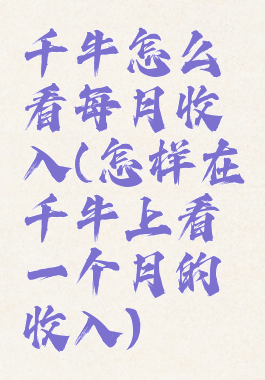 千牛怎么
看每月收
入(怎样在
千牛上看
一个月的
收入)